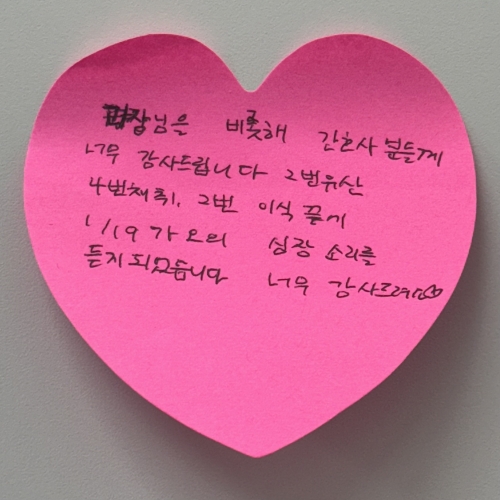 원장님을 비롯해 간호사 분들께
너무 감사드립니다 2번유산
4번채취, 2번 이식 끝에
1/19 가 오늬 심장 소리를
듣게 되었습니다 너무 감사드려요♡